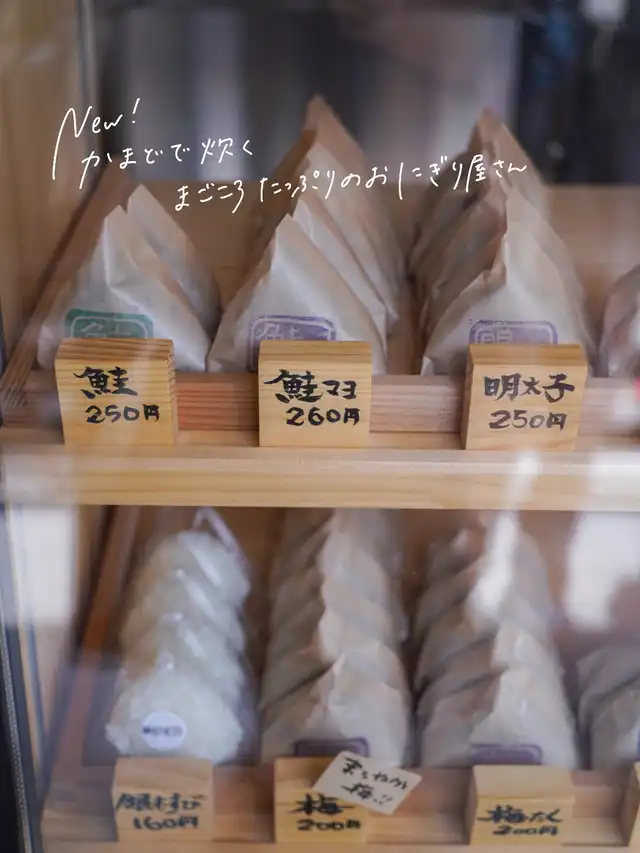 New!
かまどで炊く
まごころたっぷりのおにぎり屋さん
鮭
250円
鮭マヨ
260円
明太子
250円
銀むすび
160円
まろやか
梅
200円
梅たく
200円